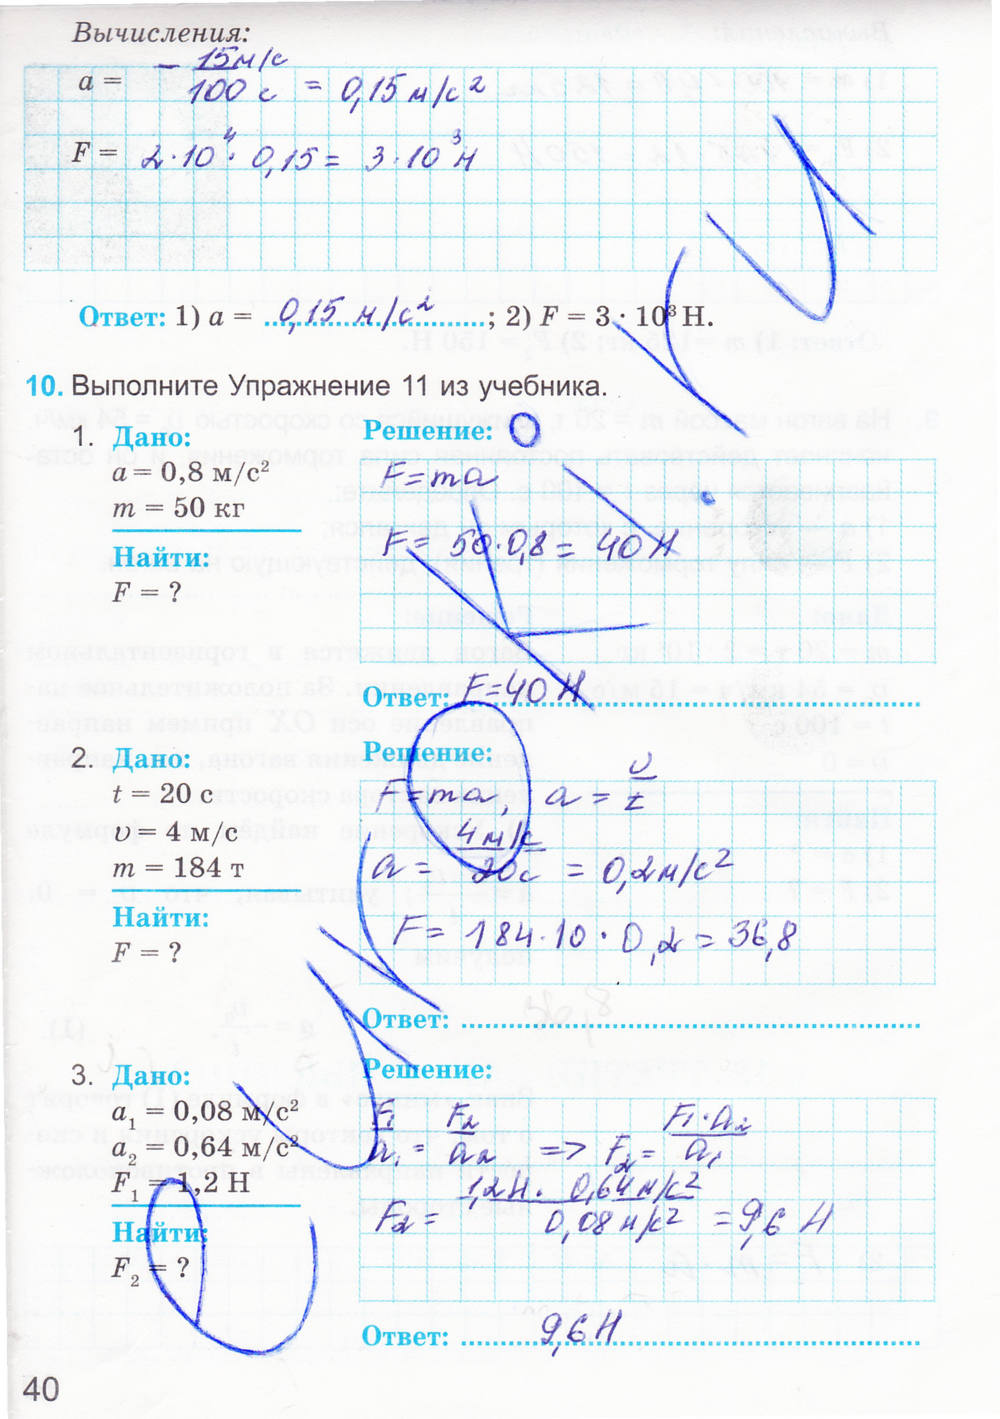 Вычисления:
a = - 15м/с / 100 с = 0,15 м/с²
F = 2·10⁴· 0,15 = 3·10³ Н
Ответ: 1) a = 0,15 м/с²; 2) F = 3 · 10³ Н.
10. Выполните Упражнение 11 из учебника.
1. Дано:
a = 0,8 м/с²
m = 50 кг
Найти:
F = ?
Решение:
F = ma
F = 50·0,8 = 40 Н
Ответ: F = 40 Н
2. Дано:
t = 20 с
υ = 4 м/с
m = 184 т
Найти:
F = ?
Решение:
F = ma, a = υ/t
a = 4 м/с / 20с = 0,2 м/с²
F = 184·10·0,2 = 36,8
Ответ:
3. Дано:
a₁ = 0,08 м/с²
a₂ = 0,64 м/с²
F₁ = 1,2 Н
Найти:
F₂ = ?
Решение:
F₁/a₁ = F₂/a₂ => F₂ = F₁·a₂/a₁
F₂ = 1,2Н · 0,64 м/с² / 0,08 м/с² = 9,6 Н
Ответ: 9,6 Н
40